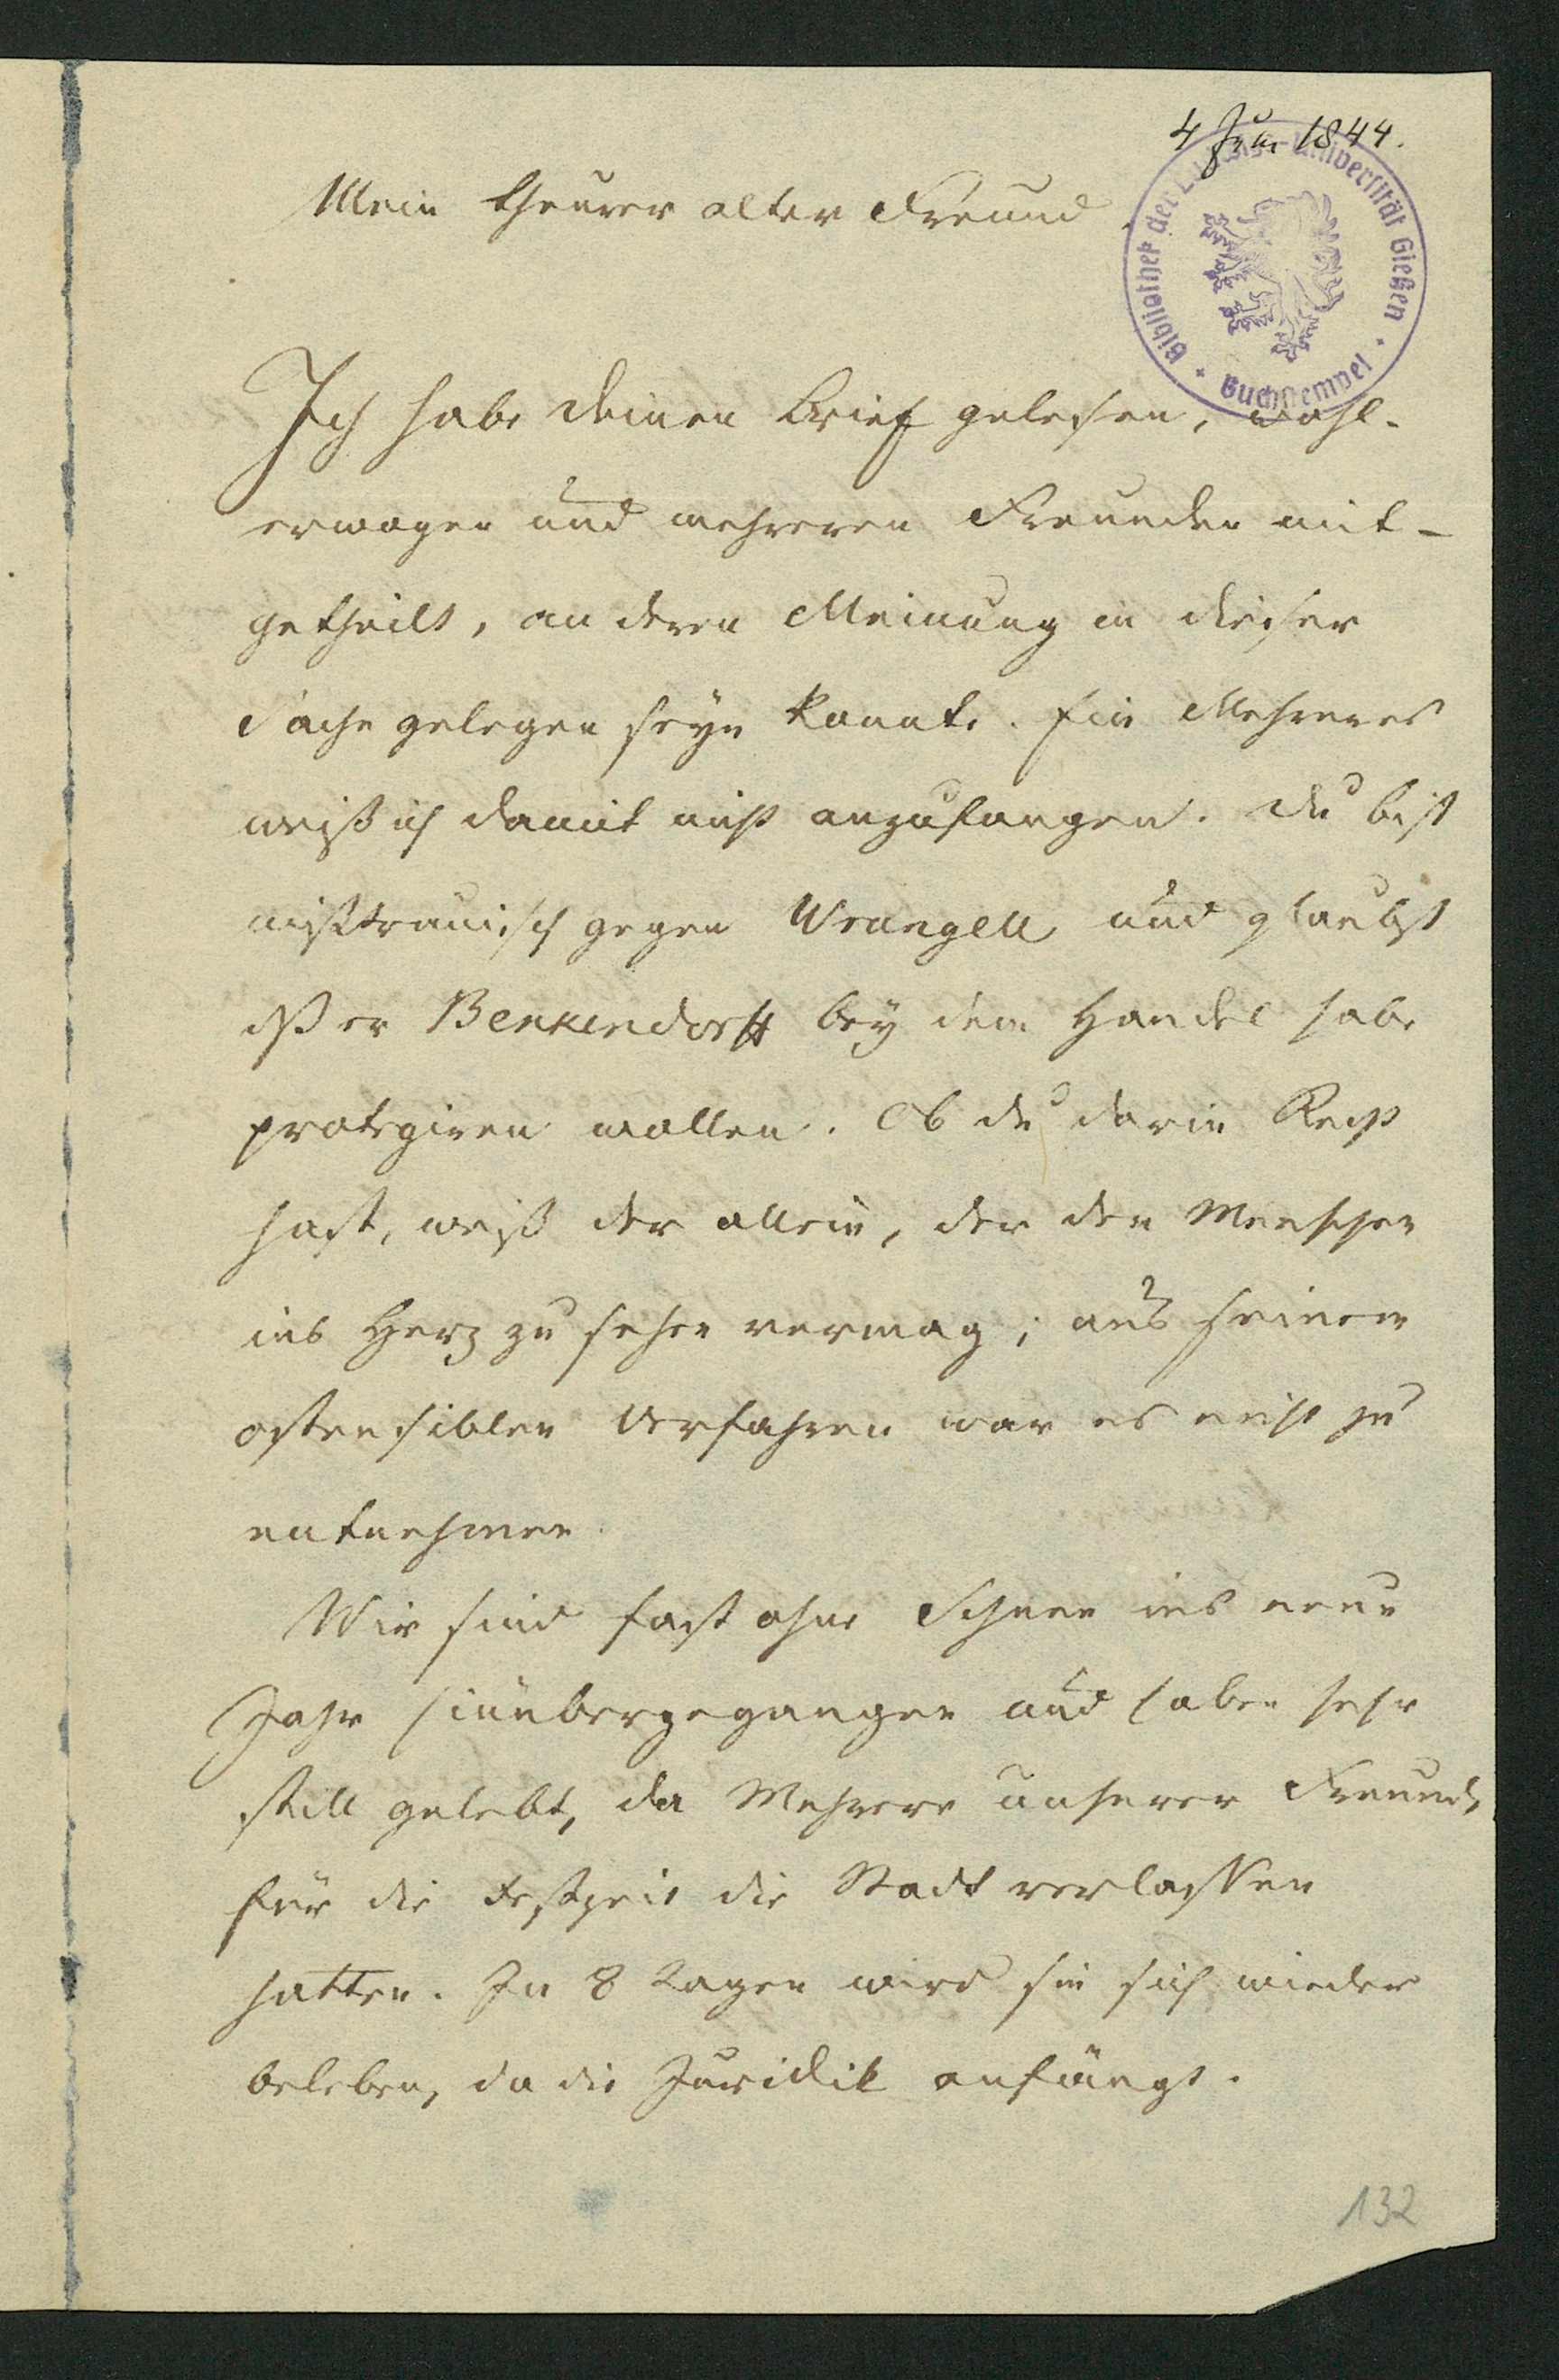 4 Jan 1844.
Mein theurer alter Freund,
Ich habe deinen Brief gelesen, wohl-
erwogen und mehreren Freunden mit-
getheilt, an deren Meinung in dieser
Sache gelegen seyn konnte. Ein Mehreres
weiß ich damit nicht anzufangen. Du bist
mißtrauisch gegen Wrangell und glaubst
dß er Benkendorff bey dem Handel habe
protegiren wollen. Ob du darin Recht
hast, weiß der allein, der den Menschen
ins Herz zu sehen vermag; aus seinem
ostensiblen Verfahren war es nicht zu
entnehmen.
Wir sind fast ohne Schnee ins neue
Jahr hinübergegangen und haben sehr
still gelebt, da Mehrere unserer Freunde
für die Festzeit die Stadt verlassen
hatten. In 8 Tagen wird sie sich wieder
beleben, da die Juridik anfängt.
Bibliothek der Ludwigs-Universität Gießen
Buchstempel
132